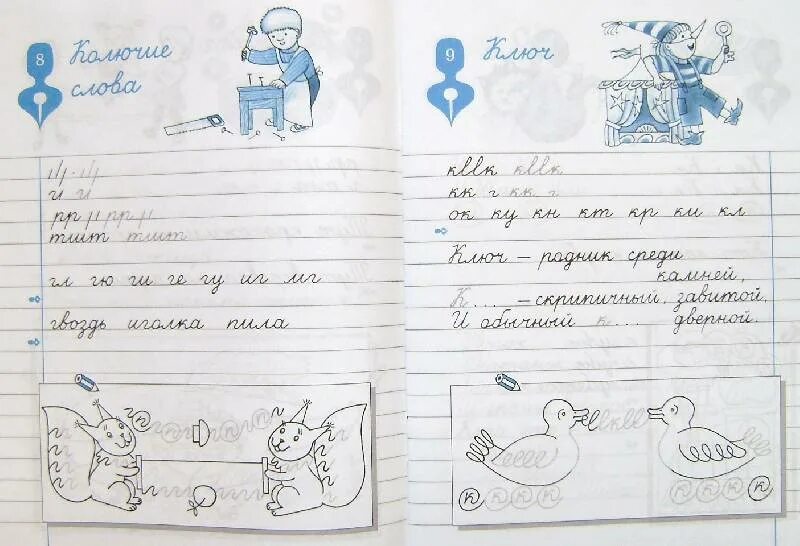 8
Колючие
слова
и и
рр р рр р
тшт тшт
гл гю ги ге гу иг мг
гвоздь иголка пила
9
Ключ
кввк кввк
кк г кк г
ок ку кн кт кр ки кл
Ключ – родник среди
камней,
К.... – скрипичный, завитой,
И обычный к.... дверной.
к
к к к к
к к к к